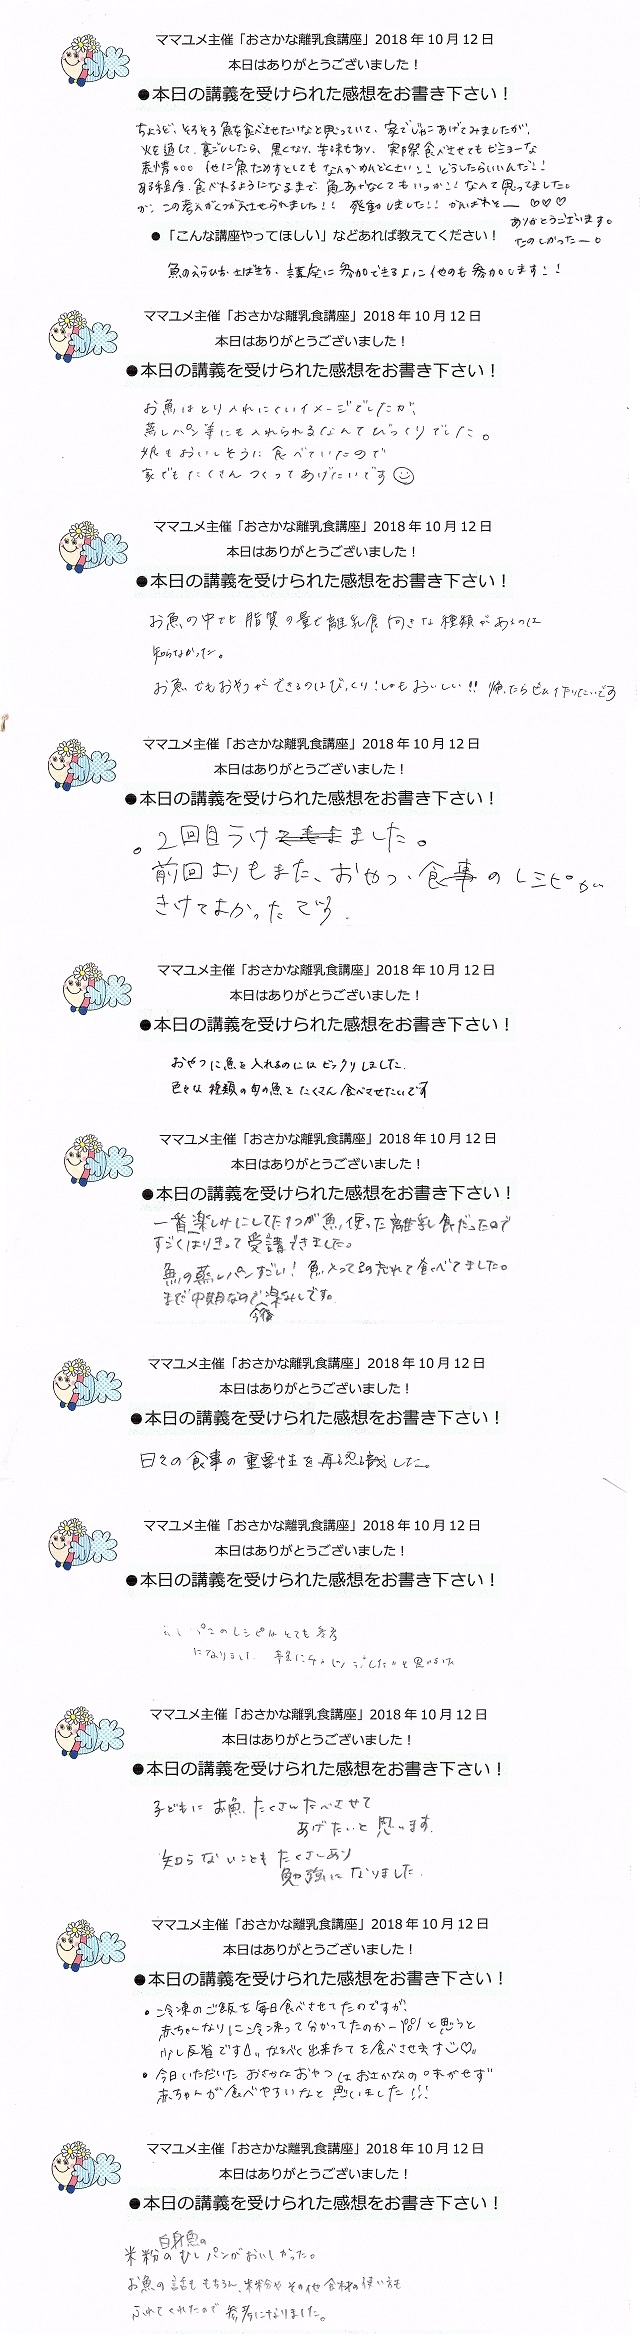 ママユメ主催「おさかな離乳食講座」2018年10月12日
本日はありがとうございました！
●本日の講義を受けられた感想をお書き下さい！
ちょうど、そろそろ魚を食べさせたいなと思っていて、家でしゅこあげてみましたが、
火を通して、裏ごししたら、黒くなり、苦味もあり、実際食べさせてもビミョーな
表情○○○ 他に魚ためすとしても なんかめんどくさい!! どうしたらいいんだ!!
ある程度、食べれるようになるまで、魚あげなくてもいっか!! なんて思ってました。
が、この考えがくつがえさせられました!! 感動しました!! がんばれそー ♡♡♡
ありがとうございます。
たのしかったー。
●「こんな講座やってほしい」などあれば教えてください！
魚のえらび方、さばき方、講座に参加できるように他のも参加します!!
ママユメ主催「おさかな離乳食講座」2018年10月12日
本日はありがとうございました！
●本日の講義を受けられた感想をお書き下さい！
お魚はとり入れにくいイメージでしたが、
蒸しパン等にも入れられるなんてびっくりでした。
娘もおいしそうに食べていたので
家でもたくさんつくってあげたいです
ママユメ主催「おさかな離乳食講座」2018年10月12日
本日はありがとうございました！
●本日の講義を受けられた感想をお書き下さい！
お魚の中でも脂質の量で離乳食向きな種類があるのは
知らなかった。
お魚でもおやつができるのはびっくり！しかもおいしい!! 帰ったらぜひ作りたいです
ママユメ主催「おさかな離乳食講座」2018年10月12日
本日はありがとうございました！
●本日の講義を受けられた感想をお書き下さい！
。2回目うけました。
前回よりもまた、おやつ、食事のレシピが
きけてよかったです.
ママユメ主催「おさかな離乳食講座」2018年10月12日
本日はありがとうございました！
●本日の講義を受けられた感想をお書き下さい！
おやつに魚を入れるのにはビックリしました.
色々な種類の旬の魚をたくさん食べさせたいです
ママユメ主催「おさかな離乳食講座」2018年10月12日
本日はありがとうございました！
●本日の講義を受けられた感想をお書き下さい！
一番楽しみにしてた1つが魚使った離乳食だったので
すごくはりきって受講できました。
魚の蒸しパンすごい！魚ってこと忘れて食べてました。
まだ中期なので今後楽しみです。
ママユメ主催「おさかな離乳食講座」2018年10月12日
本日はありがとうございました！
●本日の講義を受けられた感想をお書き下さい！
日々の食事の重要性を再認識した。
ママユメ主催「おさかな離乳食講座」2018年10月12日
本日はありがとうございました！
●本日の講義を受けられた感想をお書き下さい！
のレシピはとても参考
になりました
ママユメ主催「おさかな離乳食講座」2018年10月12日
本日はありがとうございました！
●本日の講義を受けられた感想をお書き下さい！
子どもにお魚、たくさんたべさせて
あげたいと思います.
知らないこともたくさんあり
勉強になりました.
ママユメ主催「おさかな離乳食講座」2018年10月12日
本日はありがとうございました！
●本日の講義を受けられた感想をお書き下さい！
・冷凍のご飯を毎日食べさせてたのですが、
赤ちゃんなりに冷凍って分かってたのかー!!と思うと
少し反省です なるべく出来たてを食べさせます♡
・今日いただいたおさかなおやつはおさかなの味がせず
赤ちゃんが食べやすいなと思いました!!!
ママユメ主催「おさかな離乳食講座」2018年10月12日
本日はありがとうございました！
●本日の講義を受けられた感想をお書き下さい！
白身魚の
米粉のむしパンがおいしかった。
お魚の話ももちろん、米粉やその他食材の使い方も
ふれてくれたので参考になりました。